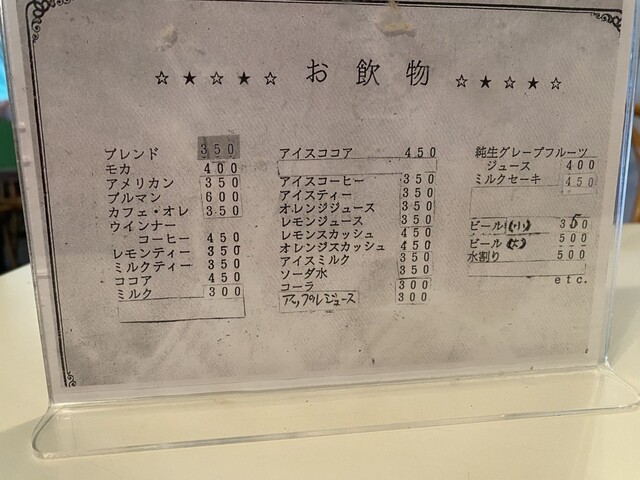 ☆★☆★☆ お飲物 ☆★☆★☆
ブレンド 350
モカ 400
アメリカン 350
ブルマン 600
カフェ・オレ 350
ウインナー
コーヒー 450
レモンティー 350
ミルクティー 350
ココア 450
ミルク 300
アイスココア 450
アイスコーヒー 350
アイスティー 350
オレンジジュース 350
レモンジュース 350
レモンスカッシュ 450
オレンジスカッシュ 450
アイスミルク 350
ソーダ水 350
コーラ 300
アップルジュース 300
純生グレープフルーツ
ジュース 400
ミルクセーキ 450
ビール(小) 350
ビール(大) 500
水割り 500
etc.